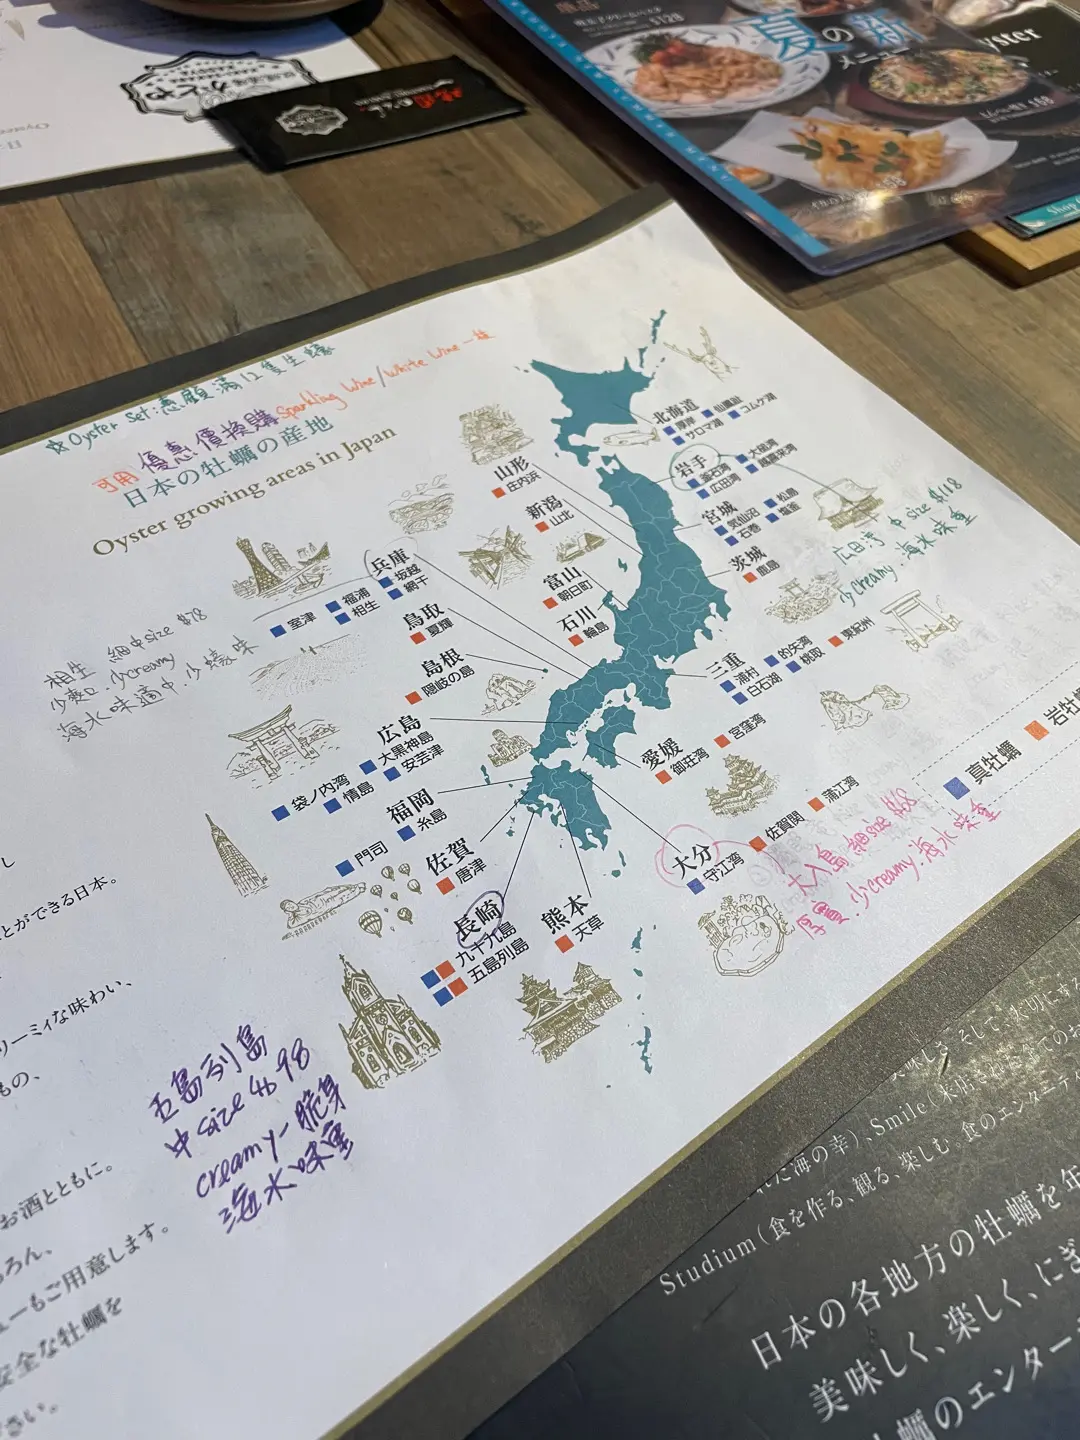 夏の新
メニュー
$128
☆Oyster Set:惠顧滿12隻生蠔
可用優惠價換購Sparkling Wine/White Wine一枝
日本の牡蠣の産地
Oyster growing areas in Japan
北海道
厚岸
仙鳳趾
コムケ湖
サロマ湖
岩手
釜石湾
大槌湾
広田湾
越喜来湾
宮城
気仙沼
松島
石巻
塩釜
茨城
鹿島
広田湾 中size $118
少creamy.海水味重
山形
庄内浜
新潟
山北
富山
朝日町
石川
輪島
兵庫
坂越
網干
福浦
相生
室津
相生 細中size $78
少爽口.少creamy
海水味適中.少蠔味
鳥取
夏輝
島根
隠岐の島
広島
大黒神島
安芸津
袋ノ内湾
情島
福岡
糸島
門司
佐賀
唐津
長崎
九十九島
五島列島
五島列島
中size $98
creamy-脆身
海水味重
熊本
天草
三重
浦村
的矢湾
東紀州
白石湖
桃取
愛媛
御荘湾
宮窪湾
大分
守江湾
佐賀関
蒲江湾
大入島 細size $68
厚實.少creamy.海水味重
真牡蠣
岩牡
とができる日本。
リーミィな味わい、
もの、
お酒とともに。
ろん、
ューもご用意します。
安全な牡蠣を
さい。
れた海の幸）、Smile（
Studium（食を作る、観る、楽しむ 食のエンターテイ
日本の各地方の牡蠣を年
美味しく、楽しく、にぎ
牡蠣のエンター